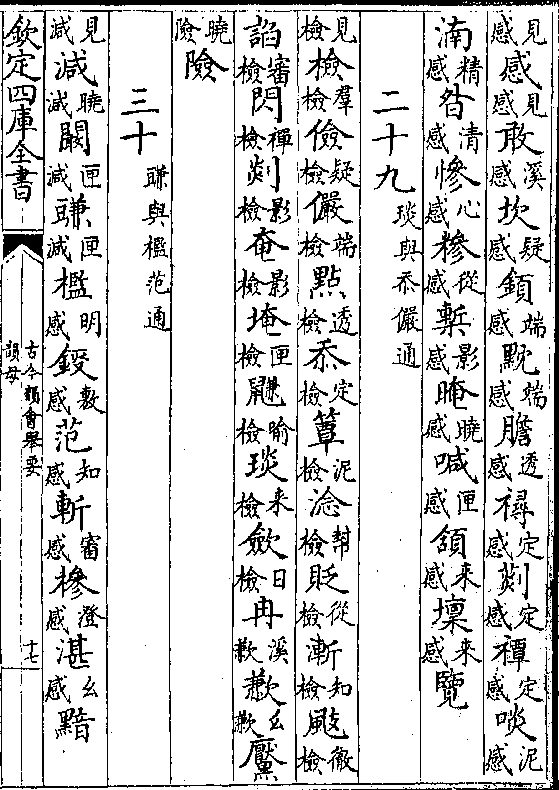 見感感見感敢溪感坎疑感顉端感黕端感膽透感禫定感剡定感禫定感啖泥感
湳精感昝清感慘心感糝從感槧影感晻曉感喊匣感頷来感壈来感覽
二十九琰與忝儼通
見檢檢羣檢儉疑檢儼端檢點透檢忝定檢簟泥檢淰幫檢貶從檢漸知檢颭徹檢
諂審檢閃禪檢剡影檢奄影檢埯匣檢鼸喻檢琰来檢斂日檢冉溪歉歉幺歉黶
曉險險
三十豏與檻范通
見減減曉減闞匣減豏匣減檻明感錽敷感范知感斬審感摻澄感湛幺感黯
欽定四庫全書
古今韻會舉要
韻母
十七